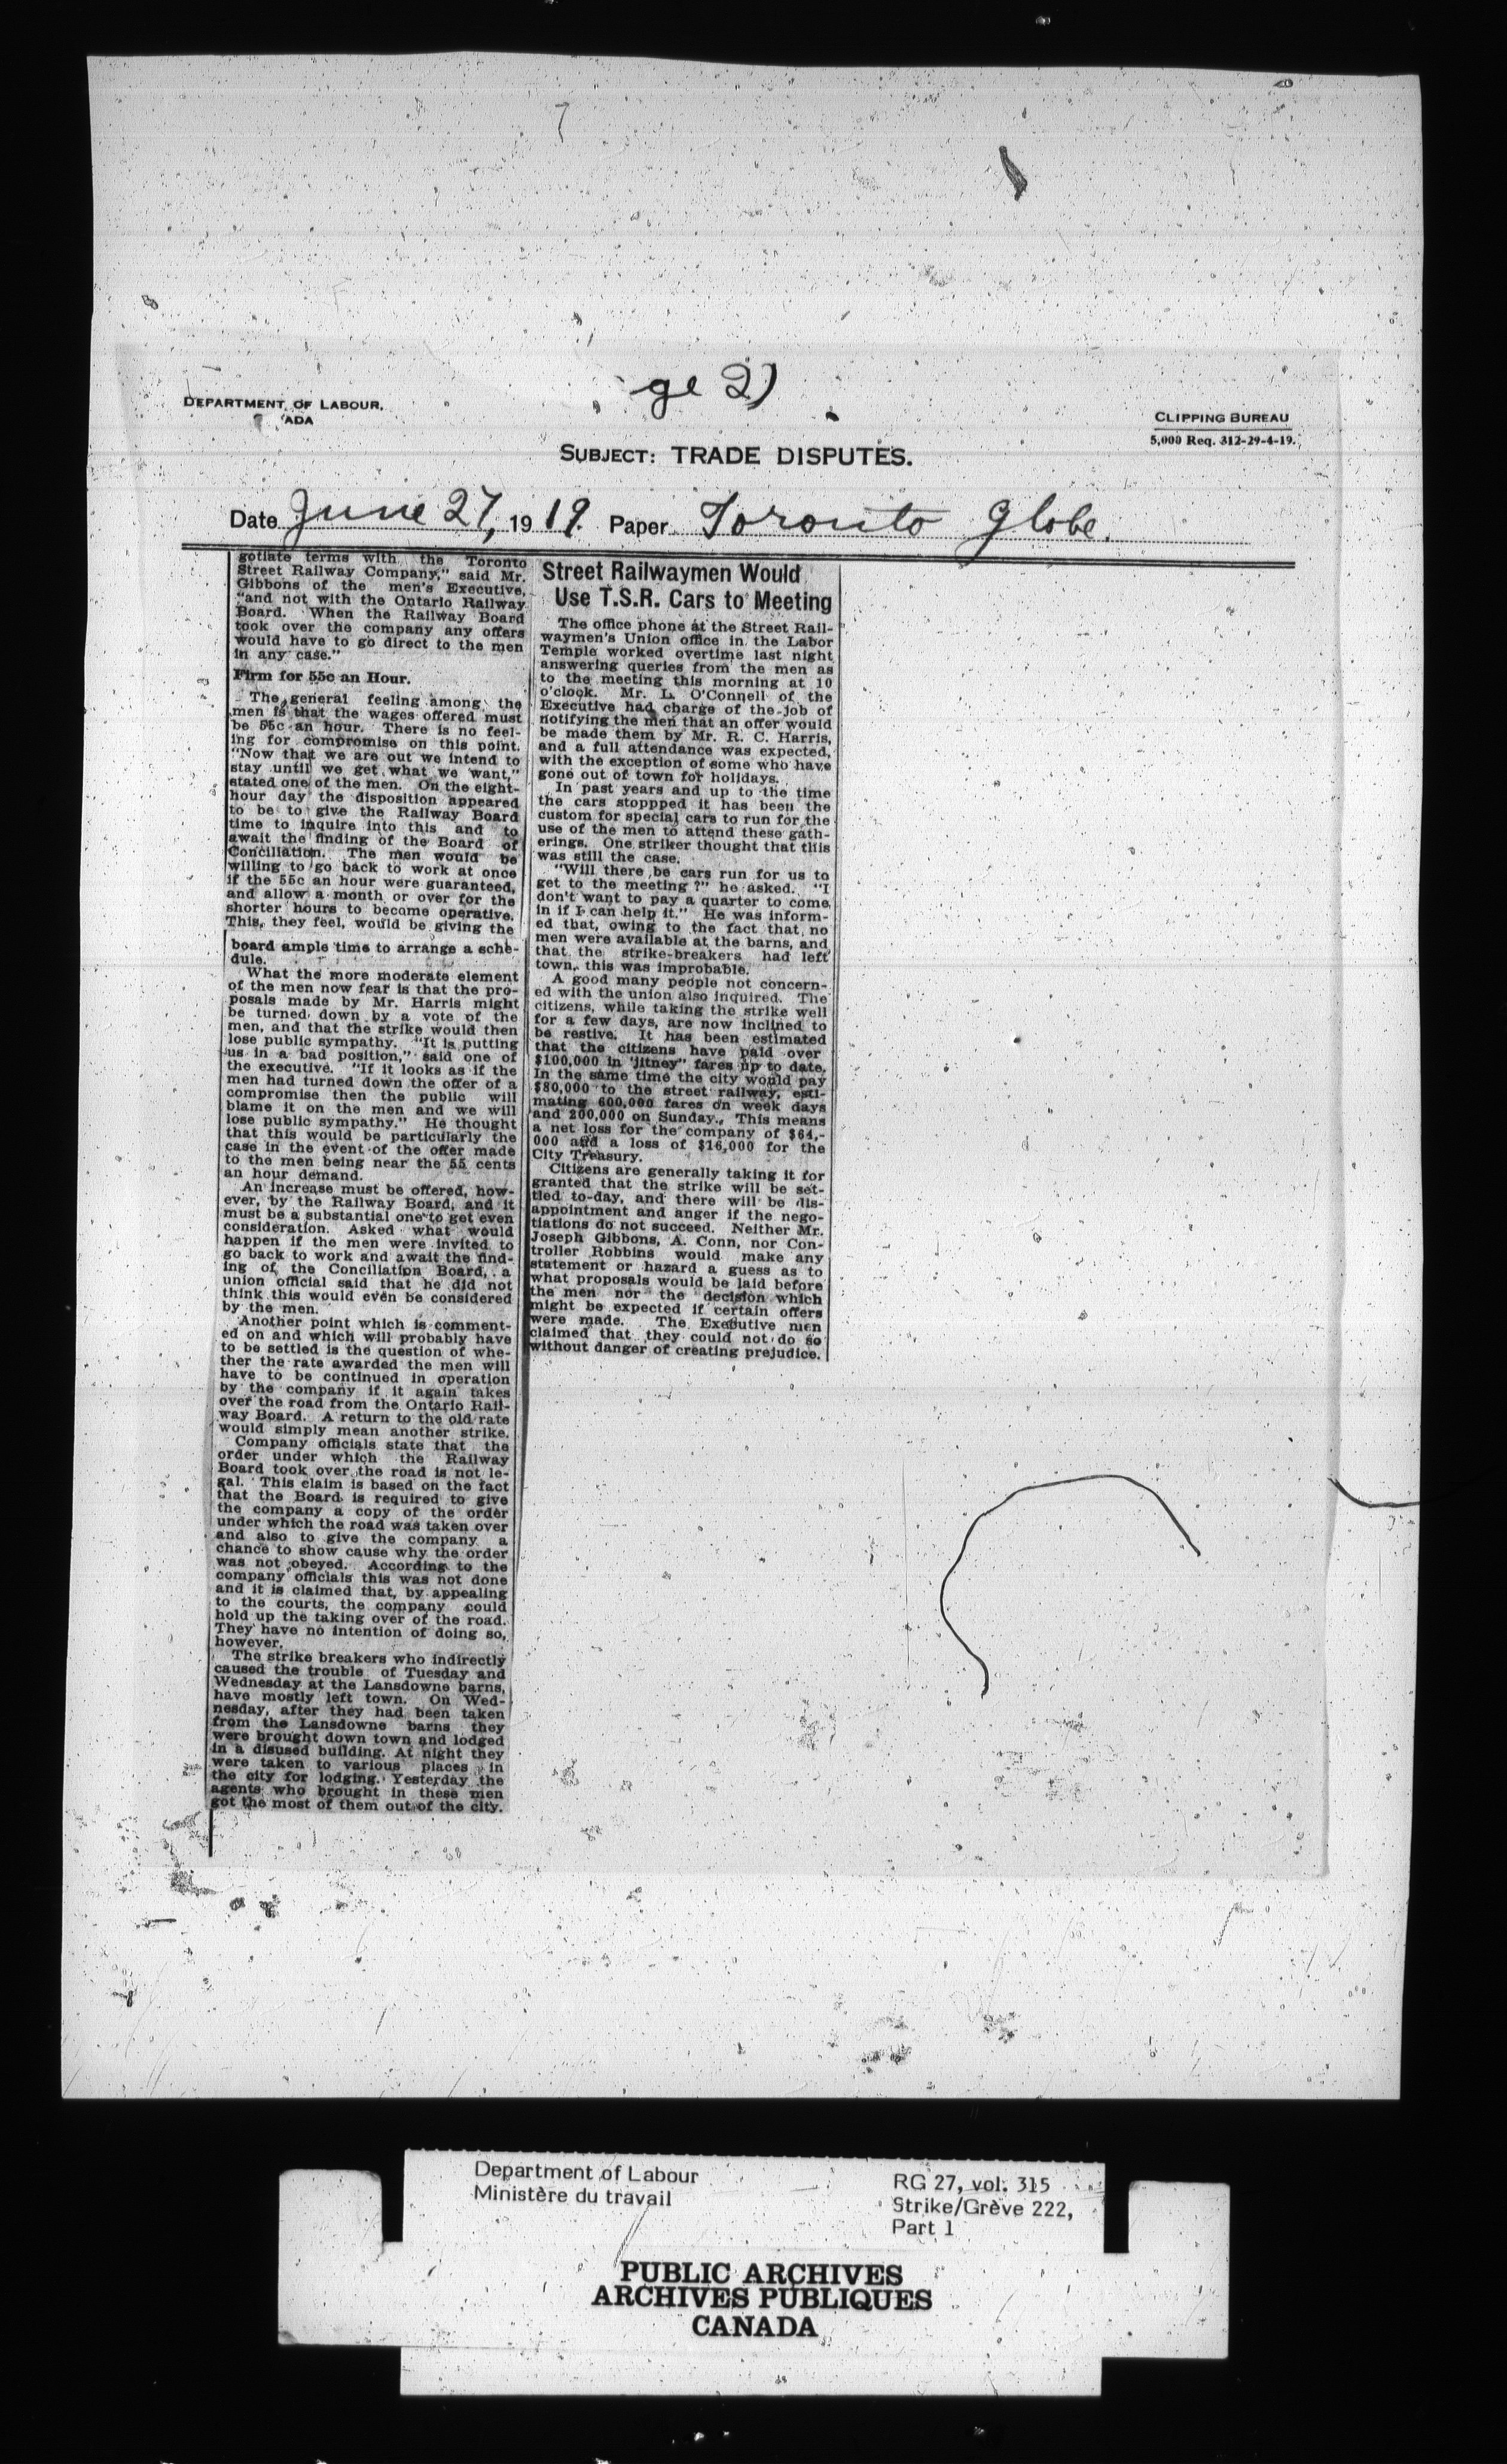 ge 2)
DEPARTMENT OF LABOUR,
ADA
CLIPPING BUREAU
5,000 Req. 312-29-4-19.
SUBJECT: TRADE DISPUTES.
Date June 27, 1919. Paper Toronto Globe.
gotiate terms with the Toronto
Street Railway Company," said Mr.
Gibbons of the men's Executive,
"and not with the Ontario Railway
Board. When the Railway Board
took over the company any offers
would have to go direct to the men
in any case."
Firm for 55c an Hour.
The general feeling among the
men is that the wages offered must
be 55c an hour. There is no feel-
ing for compromise on this point.
"Now that we are out we intend to
stay until we get what we want,"
stated one of the men. On the eight-
hour day the disposition appeared
to be to give the Railway Board
time to inquire into this and to
await the finding of the Board of
Conciliation. The men would be
willing to go back to work at once
if the 55c an hour were guaranteed,
and allow a month or over for the
shorter hours to become operative.
This, they feel, would be giving the
board ample time to arrange a sche-
dule.
What the more moderate element
of the men now fear is that the pro-
posals made by Mr. Harris might
be turned down by a vote of the
men, and that the strike would then
lose public sympathy. "It is putting
us in a bad position," said one of
the executive. "If it looks as if the
men had turned down the offer of a
compromise then the public will
blame it on the men and we will
lose public sympathy." He thought
that this would be particularly the
case in the event of the offer made
to the men being near the 55 cents
an hour demand.
An increase must be offered, how-
ever, by the Railway Board, and it
must be a substantial one to get even
consideration. Asked what would
happen if the men were invited to
go back to work and await the find-
ing of the Conciliation Board, a
union official said that he did not
think this would even be considered
by the men.
Another point which is comment-
ed on and which will probably have
to be settled is the question of whe-
ther the rate awarded the men will
have to be continued in operation
by the company if it again takes
over the road from the Ontario Rail-
way Board. A return to the old rate
would simply mean another strike.
Company officials state that the
order under which the Railway
Board took over the road is not le-
gal. This claim is based on the fact
that the Board is required to give
the company a copy of the order
under which the road was taken over
and also to give the company a
chance to show cause why the order
was not obeyed. According to the
company officials this was not done
and it is claimed that, by appealing
to the courts, the company could
hold up the taking over of the road.
They have no intention of doing so,
however.
The strike breakers who indirectly
caused the trouble of Tuesday and
Wednesday at the Lansdowne barns,
have mostly left town. On Wed-
nesday, after they had been taken
from the Lansdowne barns they
were brought down town and lodged
in a disused building. At night they
were taken to various places in
the city for lodging. Yesterday the
agents who brought in these men
got the most of them out of the city.
Street Railwaymen Would
Use T.S.R. Cars to Meeting
The office phone at the Street Rail-
waymen's Union office in the Labor
Temple worked overtime last night
answering queries from the men as
to the meeting this morning at 10
o'clock. Mr. L. O'Connell of the
Executive had charge of the job of
notifying the men that an offer would
be made them by Mr. R. C. Harris,
and a full attendance was expected,
with the exception of some who have
gone out of town for holidays.
In past years and up to the time
the cars stoppped it has been the
custom for special cars to run for the
use of the men to attend these gath-
erings. One striker thought that this
was still the case.
"Will there be cars run for us to
get to the meeting?" he asked. "I
don't want to pay a quarter to come
in if I can help it." He was inform-
ed that, owing to the fact that no
men were available at the barns, and
that the strike-breakers had left
town, this was improbable.
A good many people not concern-
ed with the union also inquired. The
citizens, while taking the strike well
for a few days, are now inclined to
be restive. It has been estimated
that the citizens have paid over
$100,000 in 'jitney" fares up to date.
In the same time the city would pay
$80,000 to the street railway, esti-
mating 600,000 fares on week days
and 200,000 on Sunday. This means
a net loss for the company of $64,-
000 and a loss of $16,000 for the
City Treasury.
Citizens are generally taking it for
granted that the strike will be set-
tled to-day, and there will be dis-
appointment and anger if the nego-
tiations do not succeed. Neither Mr.
Joseph Gibbons, A. Conn, nor Con-
troller Robbins would make any
statement or hazard a guess as to
what proposals would be laid before
the men nor the decision which
might be expected if certain offers
were made. The Executive men
claimed that they could not do so
without danger of creating prejudice.
Department of Labour
Ministère du travail
RG 27, vol. 315
Strike/Grève 222,
Part 1
PUBLIC ARCHIVES
ARCHIVES PUBLIQUES
CANADA